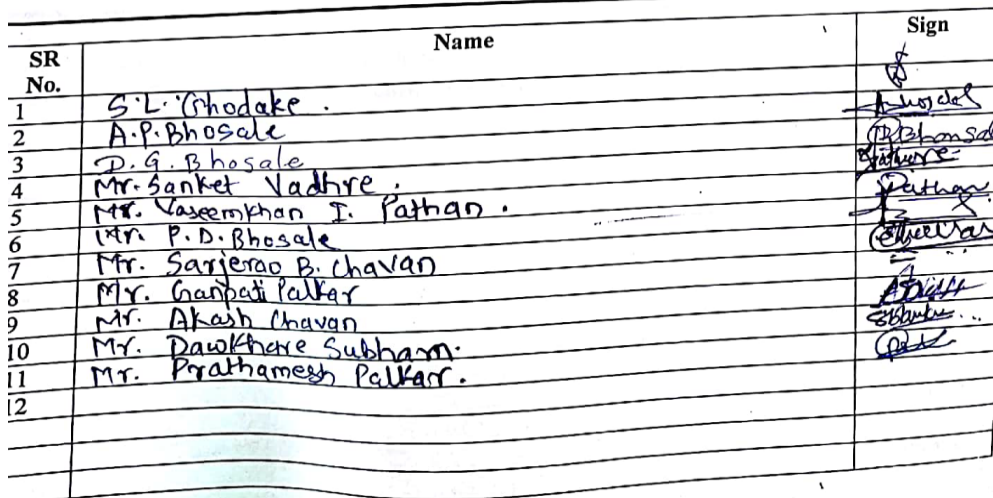 SR No. Name Sign
1 S.L. Ghodake.
2 A.P. Bhosale
3 D.G. Bhosale
4 Mr. Sanket Vadhre. 
5 Mr. Vaseemkhan I. Pathan. Pathan
6 Mr. P.D. Bhosale
7 Mr. Sarjerao B. Chavan
8 Mr. Ganpati Palkar
9 Mr. Akash Chavan
10 Mr. Dawkhare Subham.
11 Mr. Prathamesh Palkar.
12